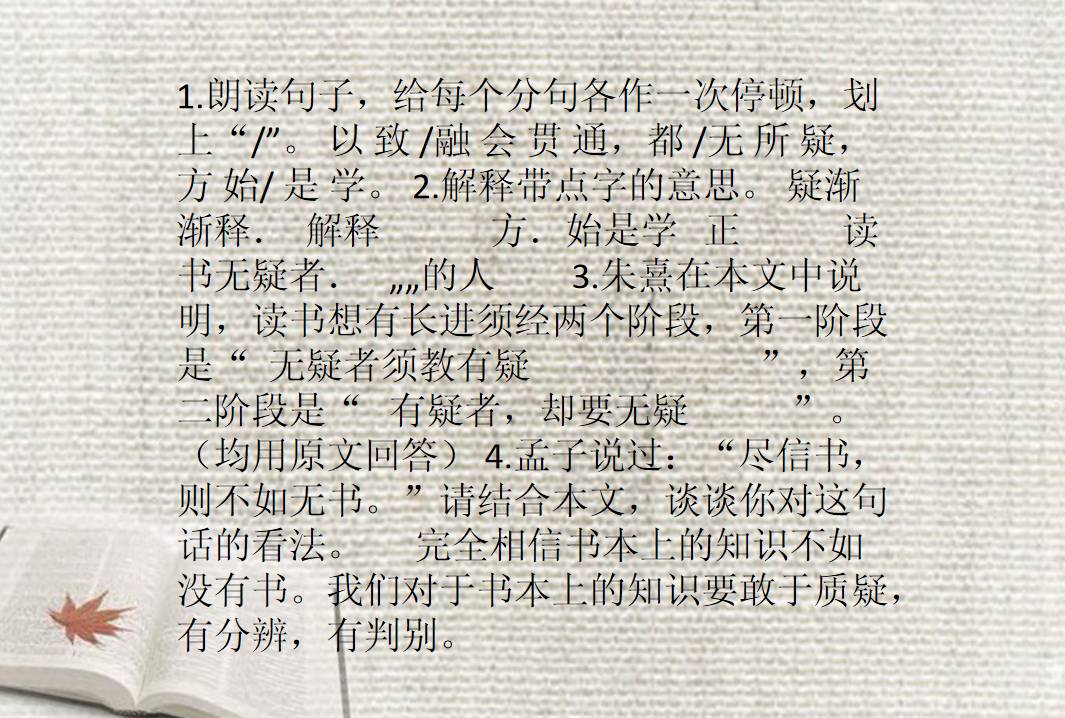 1.朗读句子，给每个分句各作一次停顿，划
上“/”。 以 致 /融 会 贯 通，都 /无 所 疑，
方 始/ 是 学。 2.解释带点字的意思。 疑渐
渐释． 解释 方．始是学 正 读
书无疑者． „„的人 3.朱熹在本文中说
明，读书想有长进须经两个阶段，第一阶段
是“ 无疑者须教有疑 ”，第
二阶段是“ 有疑者，却要无疑 ”。
（均用原文回答） 4.孟子说过：“尽信书，
则不如无书。”请结合本文，谈谈你对这句
话的看法。 完全相信书本上的知识不如
没有书。我们对于书本上的知识要敢于质疑，
有分辨，有判别。